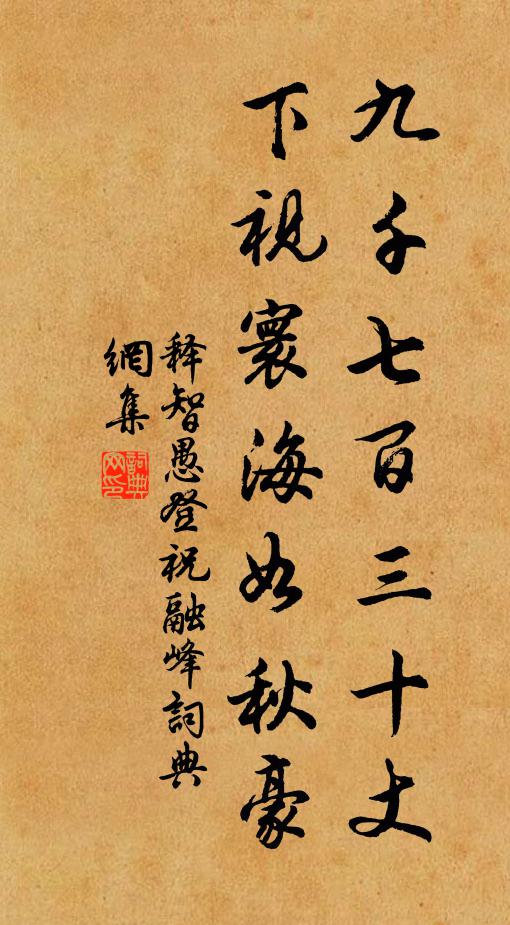 九千七百三十丈
下視寰海如秋豪
释智愚登祝融峰詞典
網集
詞典网印